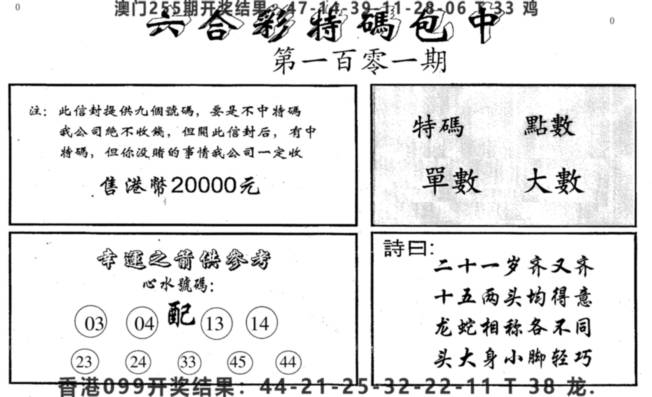 澳门255期开奖结果：47-14-39-11-28-06 T 33 鸡
六合彩特碼包中
第一百零一期
注：此信封提供九個號碼，要是不中特碼
我公司絶不收錢，但開此信封后，有中
特碼，但你没賭的事情我公司一定收
售港幣20000元
特碼 點數
單數 大數
幸運之箭供參考
心水號碼：
配
03 04 13 14
23 24 33 45 44
詩曰：
二十一岁齐又齐
十五两头均得意
龙蛇相称各不同
头大身小脚轻巧
香港099开奖结果：44-21-25-32-22-11 T 38 龙.